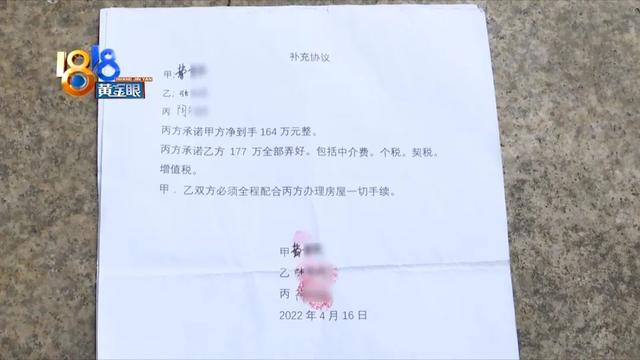 1818
黄金眼
补充协议
甲:
乙:
丙
丙方承诺甲方净到手 164 万元整。
丙方承诺乙方 177 万全部弄好。包括中介费。个税。契税。
增值税。
甲．乙双方必须全程配合丙方办理房屋一切手续。
甲
乙
丙
2022 年 4 月 16 日